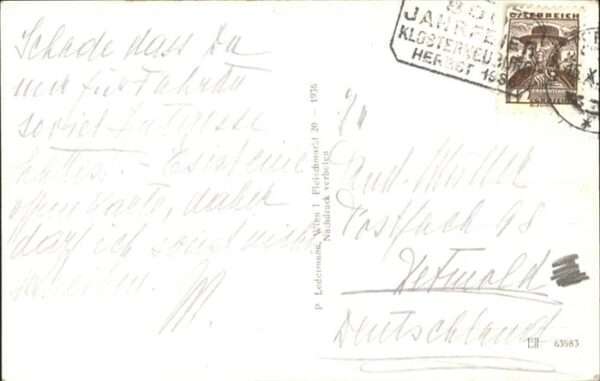 Schade dass Du
nur für Fahrten
soviel Interesse
hattest. – Es ist eine
offene Karte, daher
darf ich sonst nicht
schreiben.
M.
P. Ledermann, Wien I Fleischmarkt 20 – 1936
Nachdruck verboten
JAHRFEIER
KLOSTERNEUBURG
HERBST 193
ÖSTERREICH
Müller
Postfach 98
Detmold
Deutschland
63983